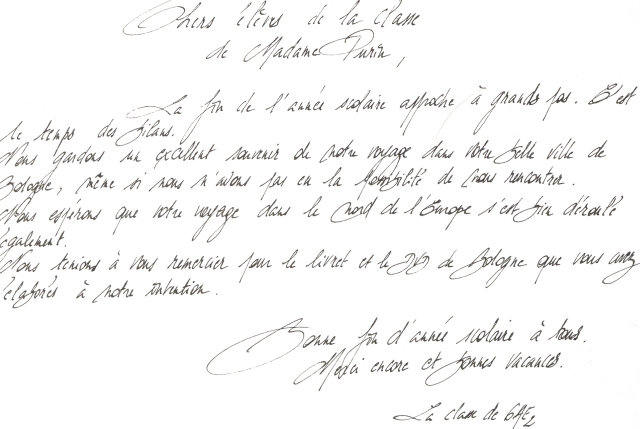 Chers élèves de la classe
de Madame Purin,
La fin de l'année scolaire approche à grands pas. C'est
le temps des bilans.
Nous gardons un excellent souvenir de notre voyage dans votre belle ville de
Bologne, même si nous n'avons pas eu la possibilité de nous rencontrer.
Nous espérons que votre voyage dans le nord de l'Europe s'est bien déroulé
également.
Nous tenions à vous remercier pour le livret et le DVD de Bologne que vous avez
élaborés à notre intention.
Bonne fin d'année scolaire à tous.
Merci encore et bonnes vacances.
La classe de 6AE2